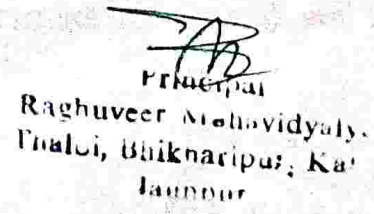 Principal
Raghuveer Mahavidyaly.
Thaloi, Bhikharipur, Ka
Jaunpur